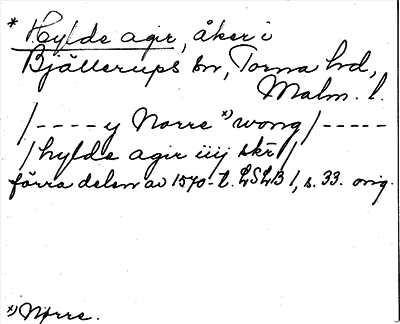 * Hylde agir, åker i
Bjällerups sn, Torna hd,
Malm. l.
/---- y Norre *) wong/-----
/hylde agir iiij skr/
förra delen av 1570-t. LSLB 1, s. 33. orig.
*) Nørre.